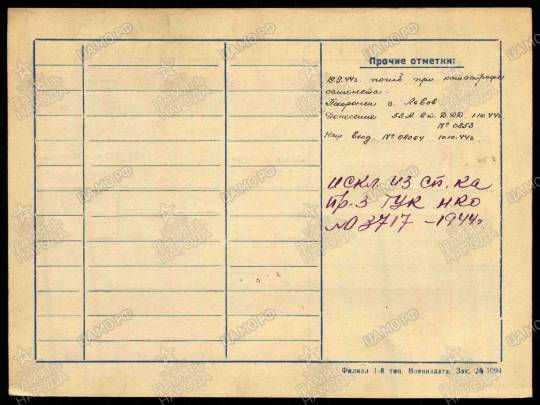 Прочие отметки:
19.9.44г. погиб при катастрофе
самолета.
Похоронен г. Львов
Донесение 53А. Ск. Д.ДД. 1.10.44г.
№ 0853
Наш вход. № 08004 10.10.44г.
искл из сп. ка
пр. з ГУК НКО
№ 03717 - 1944г.
Филиал 1-й тип. Воениздата. Зак. № 1094